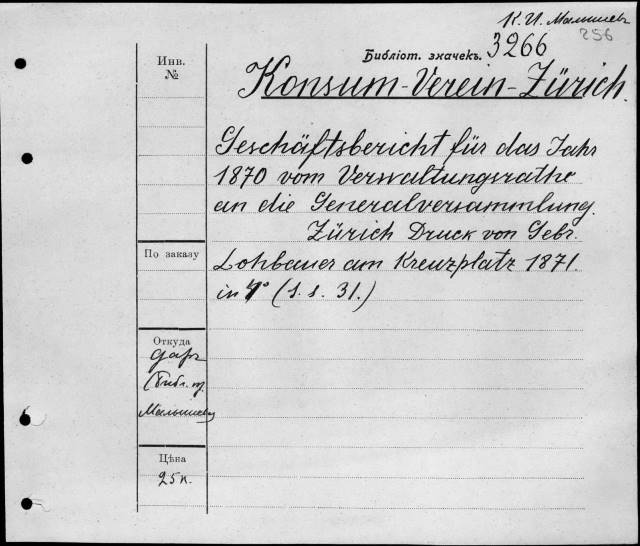 К. И. Малышев
256
Библіот. значекъ. 3266
Инв.
№
Konsum-Verein-Zürich.
Geschäftsbericht für das Jahr
1870 vom Verwaltungsrathe
an die Generalversammlung.
Zürich Druck von Gebr.
По заказу
Lohbauer am Kreuzplatz 1871.
in 4° (S. s. 31.)
Откуда
даръ
(библ. пр.
Малышева
Цѣна
25 к.